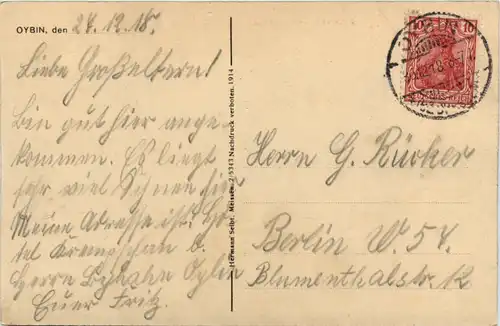 OYBIN, den 24.12.18.
Liebe Großeltern!
Bin gut hier ange-
kommen. Es liegt
sehr viel Schnee hier
Meine Adresse ist: Ho-
tel b.
Herrn Oybin
Euer Fritz.
Hermann Seibt, Meissen 2/5343 Nachdruck verboten. 1914
10
Herrn G. Rücker
Berlin W. 57.
Blumenthalstr. 12